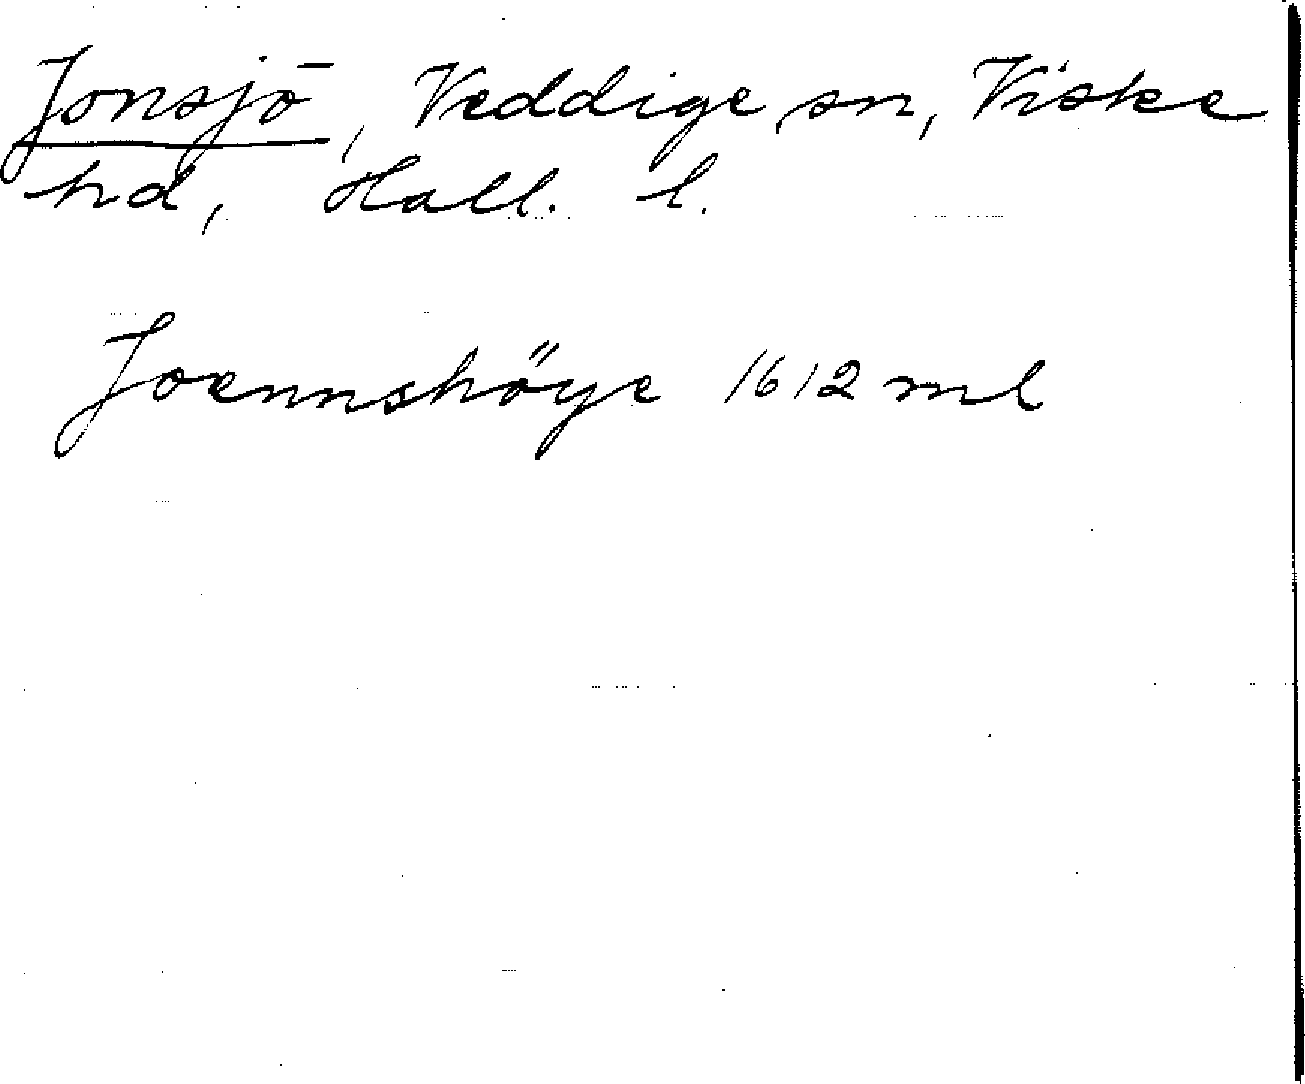 Jonsjö, Veddige sn, Viske
hd, Hall. l.
Joennshöye 1612 ml